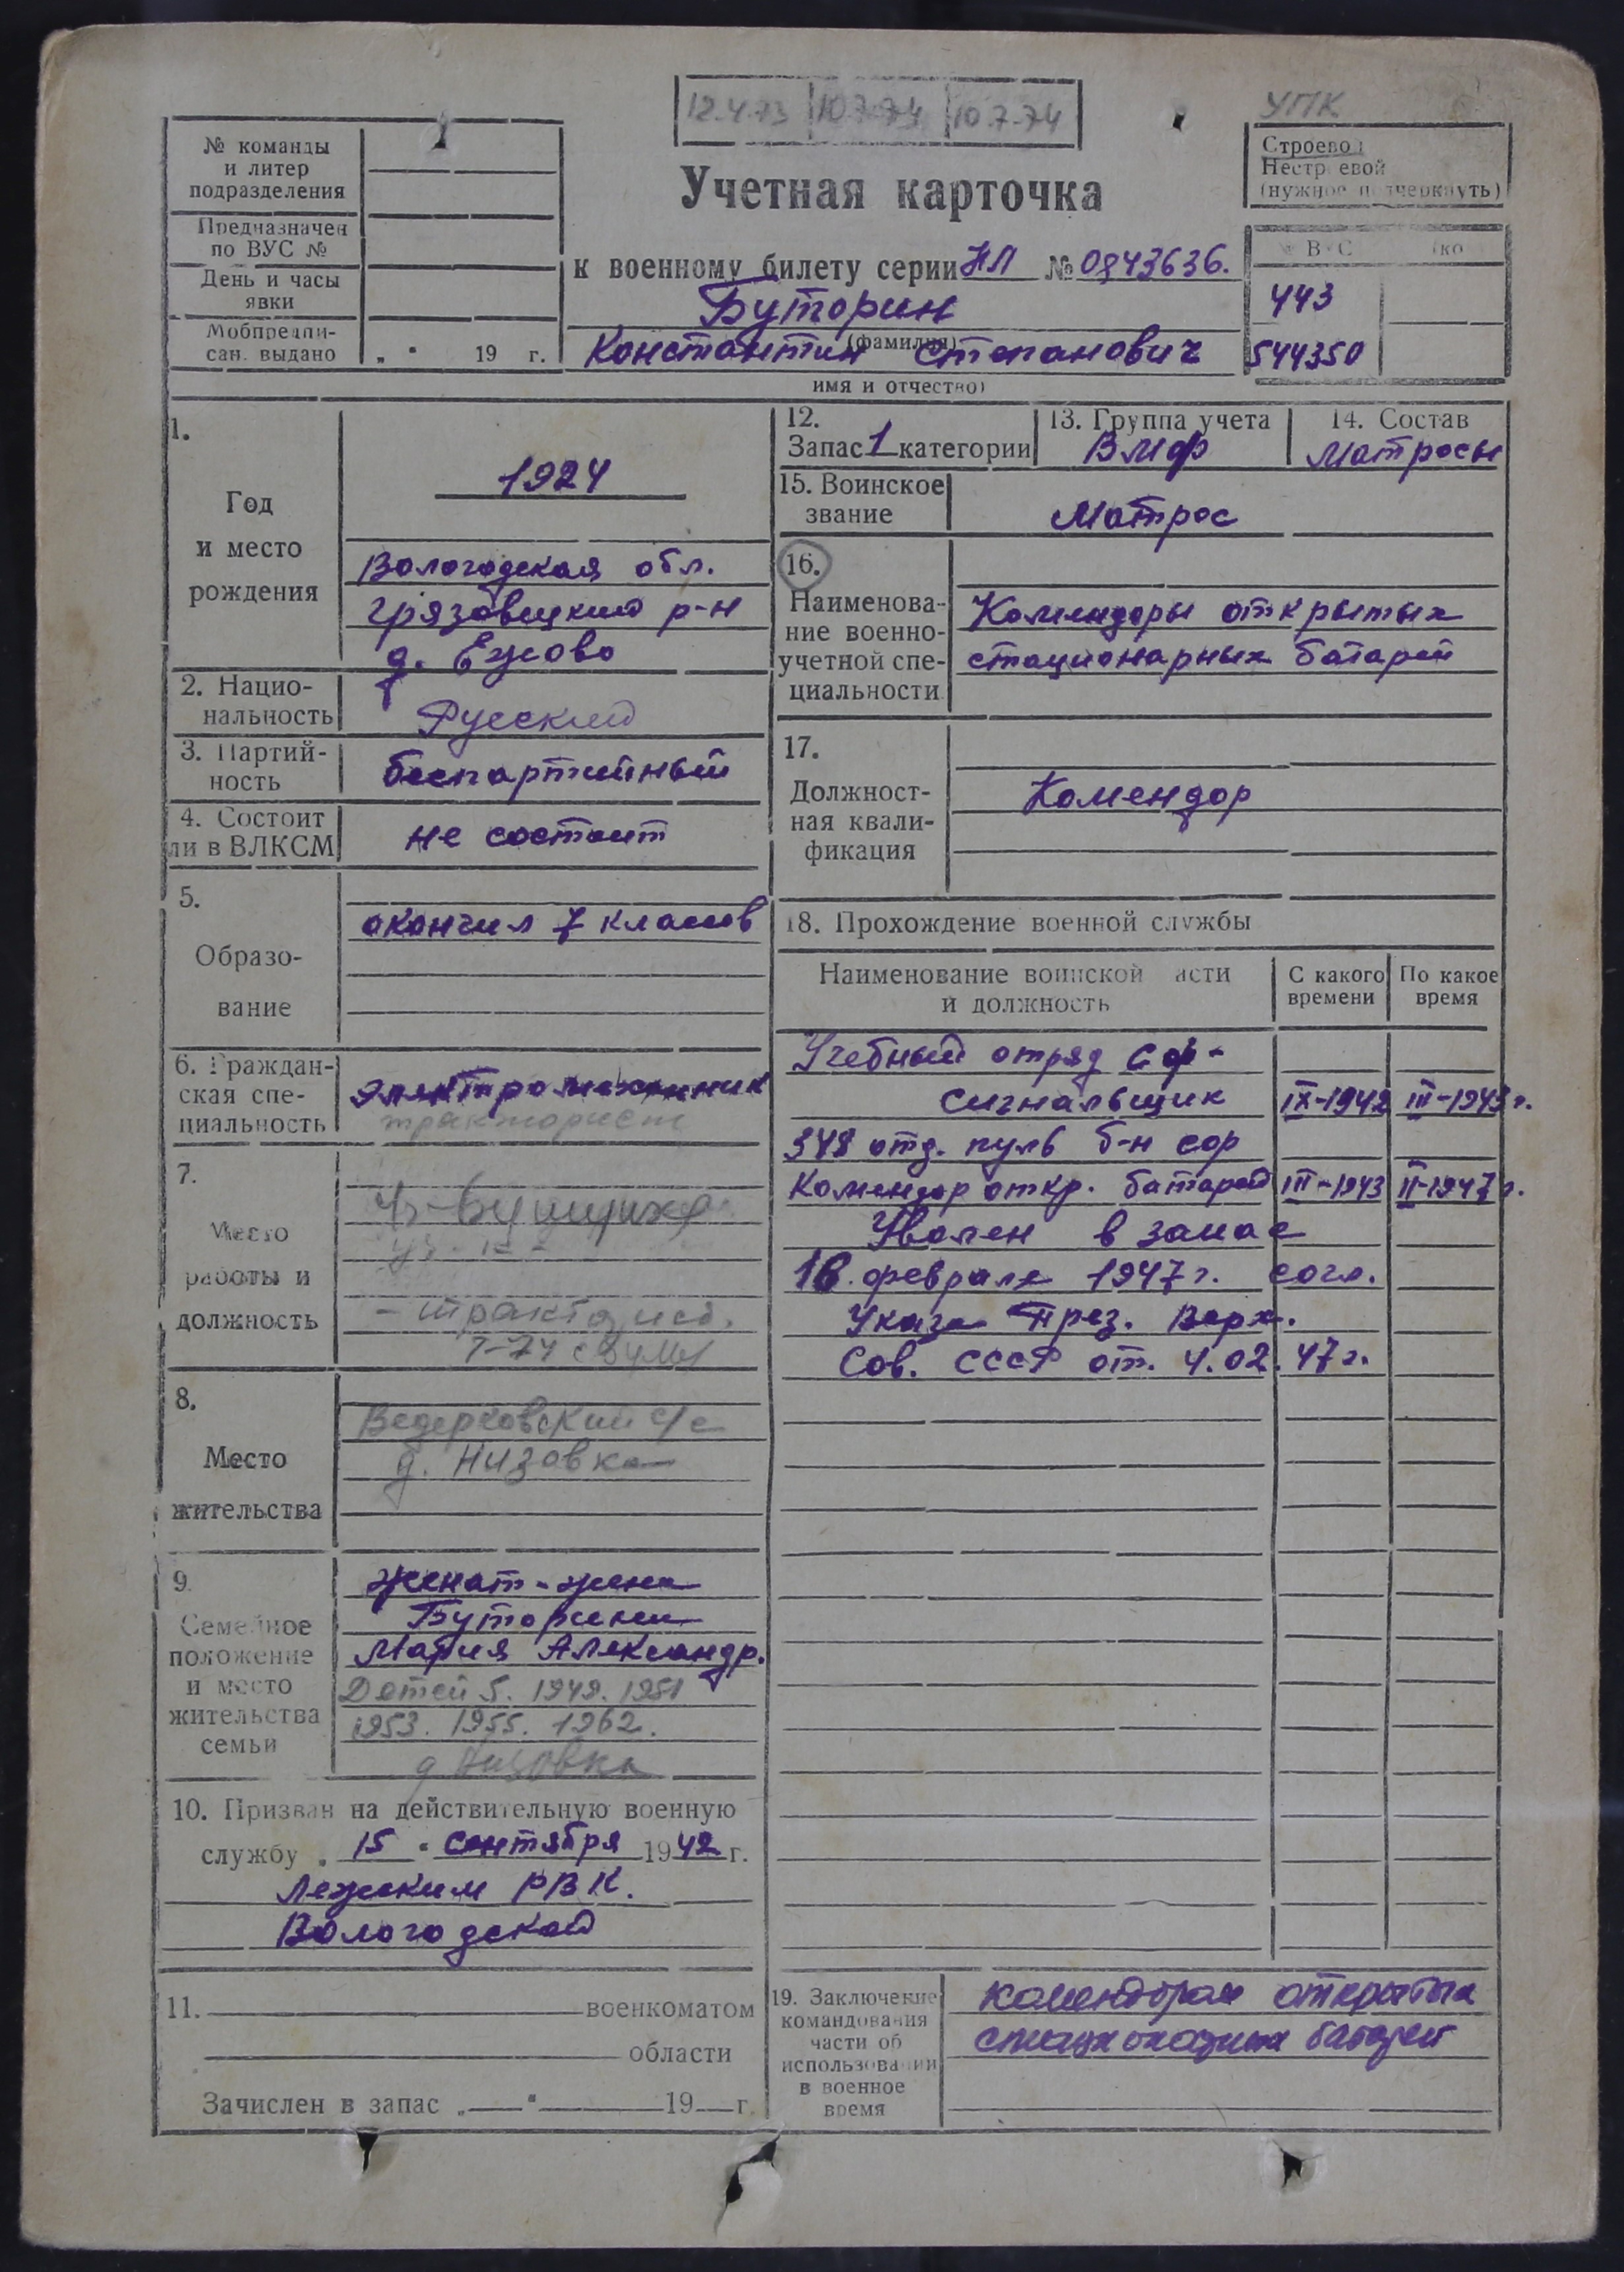 12.4.73 10.7.74 10.7.74
УПК
№ команды
и литер
подразделения
Предназначен
по ВУС №
День и часы
явки
Мобпредпи-
сан. выдано „ " 19 г.
Учетная карточка
к военному билету серии НЛ № 0843636.
Буторин
(фамилия)
Константин Степанович
имя и отчество)
Строевой
Нестроевой
(нужное подчеркнуть)
ВУС
443
544350
1.
Год
и место
рождения
1924
Вологодская обл.
Грязовецкий р-н
д. Ежово
2. Нацио-
нальность
Русский
3. Партий-
ность
беспартийный
4. Состоит
ли в ВЛКСМ
не состоит
5.
Образо-
вание
окончил 7 классов
6. Граждан-
ская спе-
циальность
электромеханик
тракторист
7.
Место
работы и
должность
Т-74
8.
Место
жительства
Ведерковский с/с
д. Низовка
9.
Семейное
положение
и место
жительства
семьи
женат - жена
Буторина
Мария Александр.
Детей 5. 1949. 1951
1953. 1955. 1962.
д Низовка
10. Призван на действительную военную
службу „ 15 " сентября 1942 г.
Лежским РВК.
Вологодской
11. военкоматом
области
Зачислен в запас „ " 19 г.
12.
Запас 1 категории
13. Группа учета
ВМФ
14. Состав
Матросы
15. Воинское
звание
Матрос
16.
Наименова-
ние военно-
учетной спе-
циальности
Комендоры открытых
стационарных батарей
17.
Должност-
ная квали-
фикация
Комендор
18. Прохождение военной службы
Наименование воинской части
и должность
С какого
времени
По какое
время
Учебный отряд сф-
сигнальщик IX-1942 III-1943 г.
348 отд. пуль б-н сор
Комендор откр. батарей III-1943 II-1947 г.
Уволен в запас
18. февраля 1947 г. согл.
Указа През. Верх.
Сов. СССР от. 4.02.47 г.
19. Заключение
командования
части об
использовании
в военное
время
комендором открытых
стационарных батарей